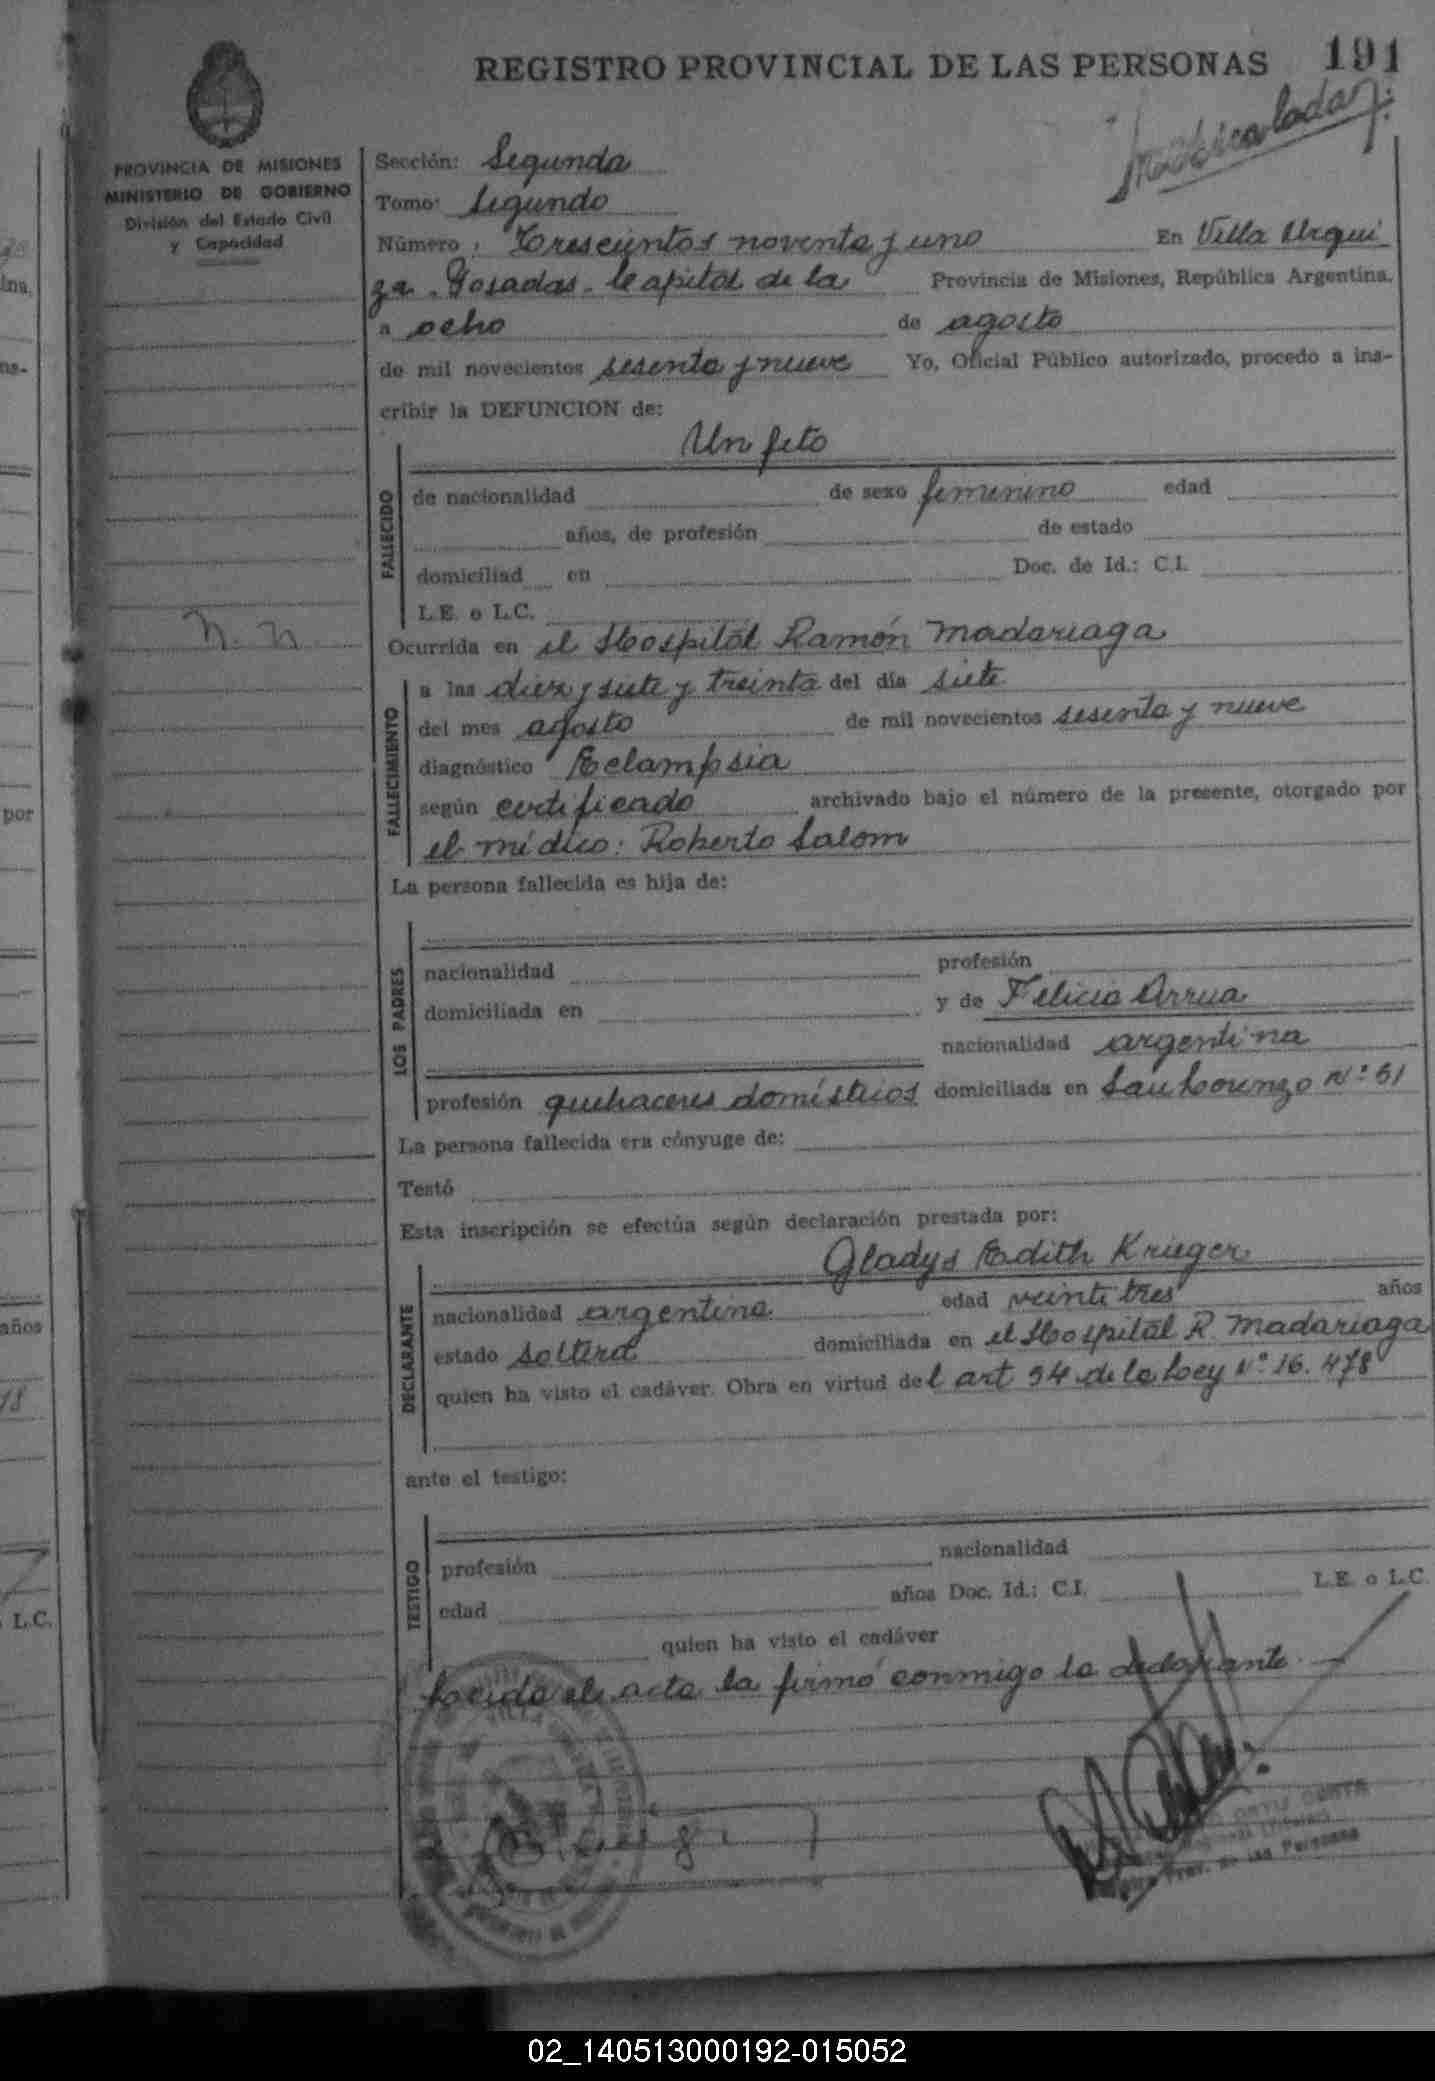 REGISTRO PROVINCIAL DE LAS PERSONAS 191
PROVINCIA DE MISIONES
MINISTERIO DE GOBIERNO
División del Estado Civil
y Capacidad
Sección: Segunda
Tomo: Segundo
Número: Trescientos noventa y uno En Villa Urqui
za - Posadas - Capital de la Provincia de Misiones, República Argentina,
a ocho de agosto
de mil novecientos sesenta y nueve Yo, Oficial Público autorizado, procedo a ins-
cribir la DEFUNCION de:
Un feto
FALLECIDO
de nacionalidad de sexo femenino edad
años, de profesión de estado
domiciliad en Doc. de Id.: C.I.
L.E. o L.C.
N. N.
Ocurrida en el Hospital Ramón Madariaga
FALLECIMIENTO
a las diez y siete y treinta del día siete
del mes agosto de mil novecientos sesenta y nueve
diagnóstico Eclampsia
según certificado archivado bajo el número de la presente, otorgado por
el médico: Roberto Salom
La persona fallecida es hija de:
LOS PADRES
nacionalidad profesión
domiciliada en y de Felicia Arrua
nacionalidad argentina
profesión quehaceres domésticos domiciliada en San Lorenzo Nº 51
La persona fallecida era cónyuge de:
Testó
Esta inscripción se efectúa según declaración prestada por:
Gladys Edith Krieger
DECLARANTE
nacionalidad argentina edad veinti tres años
estado soltera domiciliada en el Hospital R. Madariaga
quien ha visto el cadáver. Obra en virtud del art 54 de la Ley Nº 16.478
ante el testigo:
TESTIGO
profesión nacionalidad
edad años Doc. Id.: C.I. L.E. o L.C.
quien ha visto el cadáver
Leída el acta la firmó conmigo la declarante.
VILLA URQUIZA
Prov. de las Personas
ina,
ns-
por
años
L.C.
02_140513000192-015052